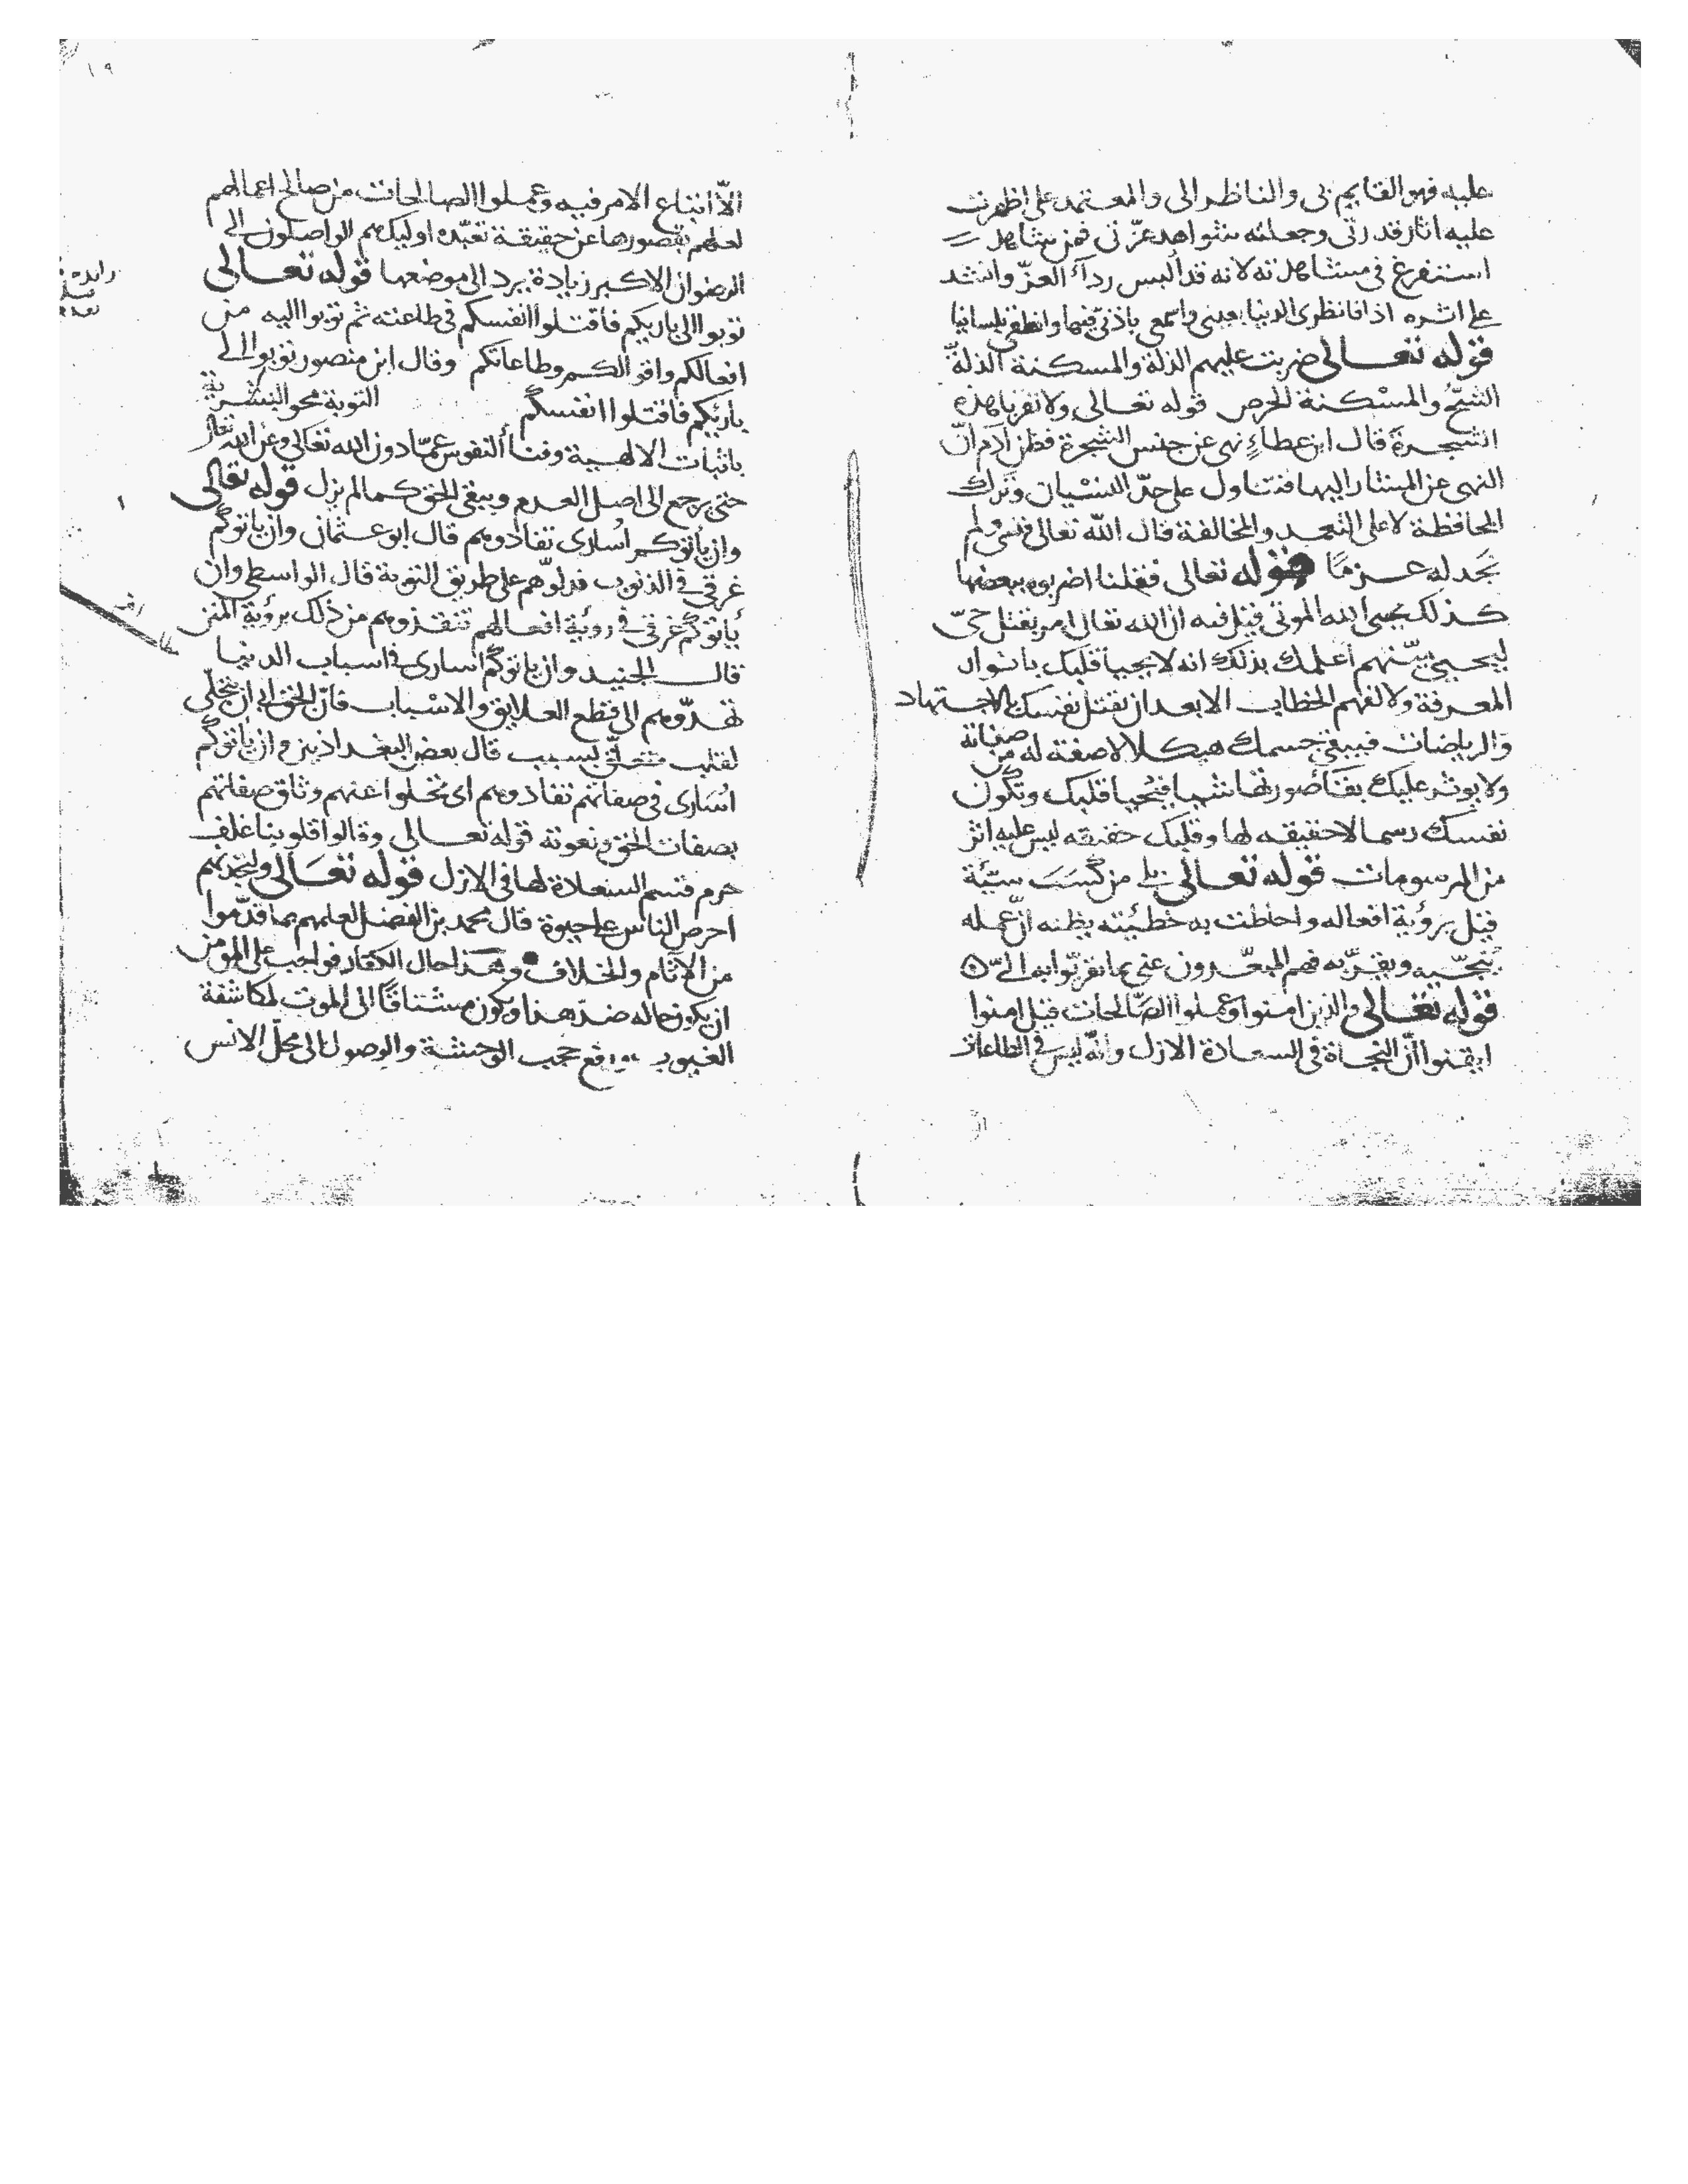 عليه فهو القايم بي والناظر الى والمعتمد على اظهرت
عليه اثار قدرتى وجعلته شواهد عزّتى فمن شاهد
استغرق في مشاهدته لانه قد أُلبس ردآء العزّ وانشد
على اثره اذا فانظرى الدنيا بعينى واسمعى باذنىّ فيها وانطقى بلسانيا
قوله تعالى ضربت عليهم الذلة والمسكنة الذلة
الشحّ والمسْكنة الحرص قوله تعالى ولا تقربا هذه
الشجرة قال ابن عطاءٍ نهى عن جنس الشجرة فظن آدم انّ
النهى عن المشار اليها فتناول على حدّ النسْيان وترك
المحافظة لا على التعمد والمخالفة قال الله تعالى فنسى ولم
نجد له عزمًا قوله تعالى فقلنا اضربوه ببعضها
كذلك يحيى الله الموتى قيل فيه ان الله تعالى امر بقتل حىّ
ليحيى ميّتهم أعلمك بذلك انه لا يحيا قلبك بانوار
المعرفة ولا لفهم الخطاب الا بعد ان تقتل نفسك بالاجتهاد
والرياضات فيبقى جسمك هيكلا لا صفة له من صفاته
ولا يوثر عليك بقآ صورتها شيا فيحيا قلبك وتكون
نفسك رسما لا حقيقه لها وقلبك حقيقه ليس عليه اثر
من المرسومات قوله تعالى بلى من كَسَبَ سيّئة
قيل برؤية افعاله واحاطت به خطيئته بظنه انّ عمله
يُنجّيه ويقرّبه فهم المبعّدون عنى بما تقرّبوا به الىّ
قوله تعالى والذين امنوا وعملوا الصّالحات قيل امنوا
ايقنوا انّ النجاة فى السعادة الازل وانّه ليس فى الطاعات
١٩
الّا اتباع الامر فيه وعملوا الصالحات من صالح اعمالهم
لعلهم بقصورها عن حقيقة تعبّده اوليك هم الواصلون الى
الرضوان الاكبر زيادة يرد الى موضعها قوله تعالى
توبوا الى باريكم فاقتلوا انفسكم فى طاعته ثم توبوا اليه من
افعالكم واقوالكم وطاعاتكم وقال ابن منصور توبوا الى
باريكم فاقتلوا انفسكم التوبة محو البشرية
باثبات الالهية وفنآ النفوس عمّا دون الله تعالى وعن الله تعالى
حتى يرجع الى اصل العدم ويبقى الحق كما لم يزل قوله تعالى
وان يأتوكم اُسارى تفادوهم قال ابو عثمان وان ياتوكم
غرقى فى الذنوب فدلوّهم على طريق التوبة قال الواسطى وان
يأتوكم غرقى فى روية افعالهم تنقذوهم من ذلك برؤية المنن
قال الجنيد وان ياتوكم اسارى فى اسباب الدنيا
تهدّوهم الى قطع العلايق والاسْباب فانّ الحق ابى ان يتجلّى
لقلب متعلّق بسبب قال بعض البغداذيين وان يأتوكم
اُسَارى فى صفاتهم تفادوهم اى تحلوا عنهم وثاق صفاتهم
بصفات الحق ونعوته قوله تعالى وقالوا قلوبنا غلف
حرم قسم السعادة لها فى الازل قوله تعالى ولتجدنهم
احرص الناس على حيوة قال محمد بن الفضل لعلمهم بما قدّموا
من الآثام والخلاف وهذا حال الكفار فواجب على المومن
ان يكون حاله ضدّ هذا ويكون مشتاقًا الى الموت لمكاشفة
الغيوب ورفع حجب الوحشة والوصول الى محلّ الانس